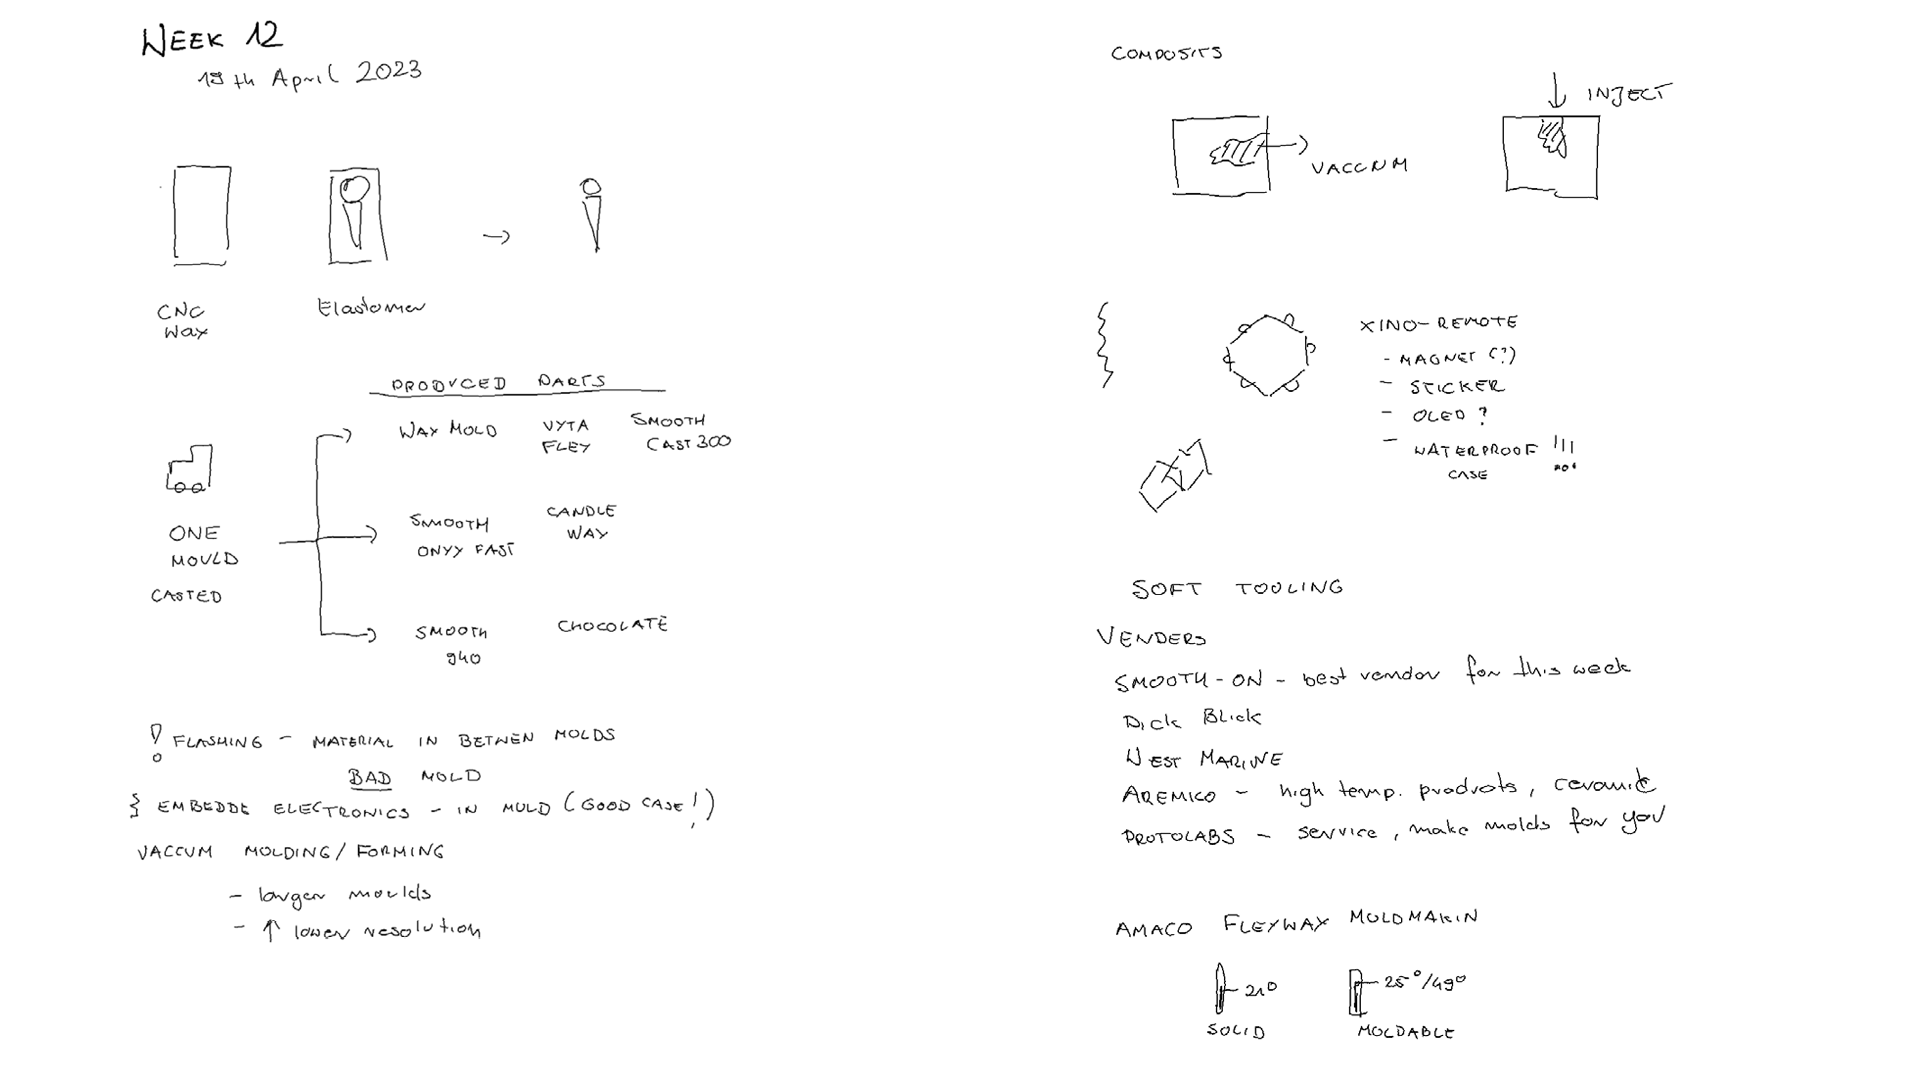 WEEK 12
19th April 2023
CNC
Wax
Elastomer
PRODUCED PARTS
WAX MOLD
VYTA
FLEX
SMOOTH
CAST 300
ONE
MOULD
CASTED
SMOOTH
ONYX FAST
CANDLE
WAX
SMOOTH
940
CHOCOLATE
! FLASHING - MATERIAL IN BETWEN MOLDS
BAD MOLD
} EMBEDDE ELECTRONICS - IN MULD (GOOD CASE!)
VACCUM MOLDING/FORMING
- larger moulds
- ↑ lower resolution
COMPOSITS
VACCUM
INJECT
XINO-REMOTE
- MAGNET (?)
- STICKER
- OLED ?
- WATERPROOF !!!
CASE
SOFT TOOLING
VENDERS
SMOOTH-ON - best vendor for this week
Dick Blick
WEST MARINE
AREMCO - high temp. products, ceramic
PROTOLABS - service, make molds for you
AMACO FLEXWAX MOLDMAKIN
21°
SOLID
25°/49°
MOLDABLE